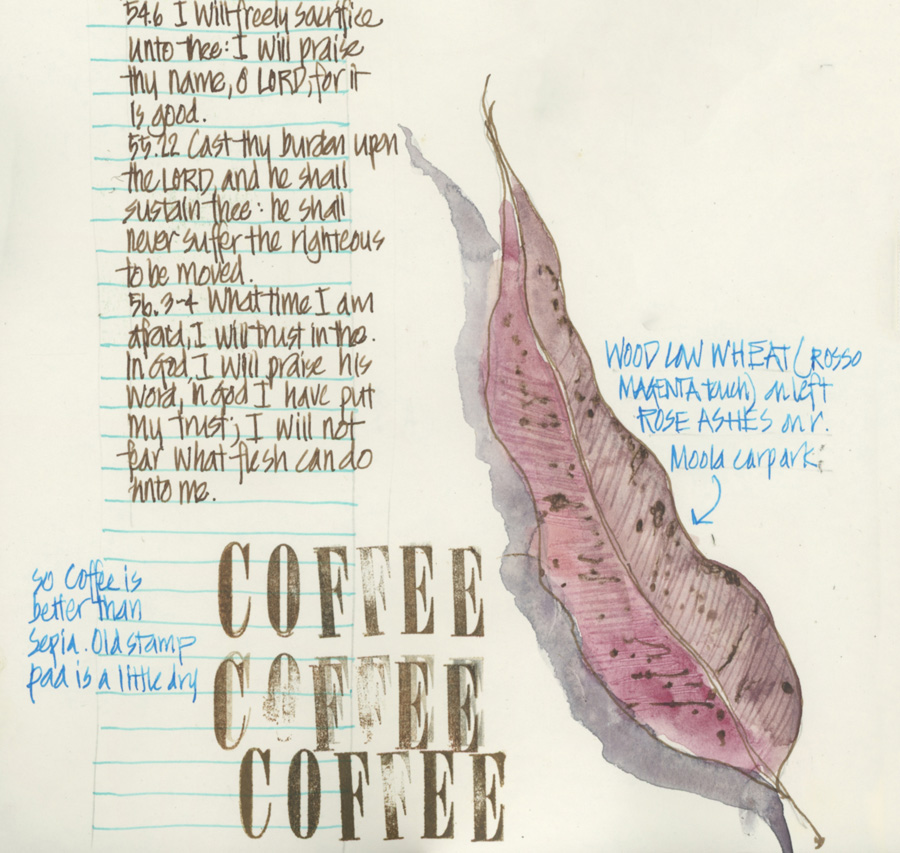 54.6 I will freely sacrifice
unto thee: I will praise
thy name, O LORD, for it
is good.
55.22 Cast thy burden upon
the LORD, and he shall
sustain thee: he shall
never suffer the righteous
to be moved.
56.3-4 What time I am
afraid, I will trust in thee.
In God, I will praise his
word, in God I have put
my trust; I will not
fear what flesh can do
unto me.
COFFEE
COFFEE
COFFEE
so Coffee is
better than
Sepia. Old stamp
pad is a little dry
WOOD LOW WHEAT (ROSSO
MAGENTA touch) on left
ROSE ASHES on r.
Moola carpark